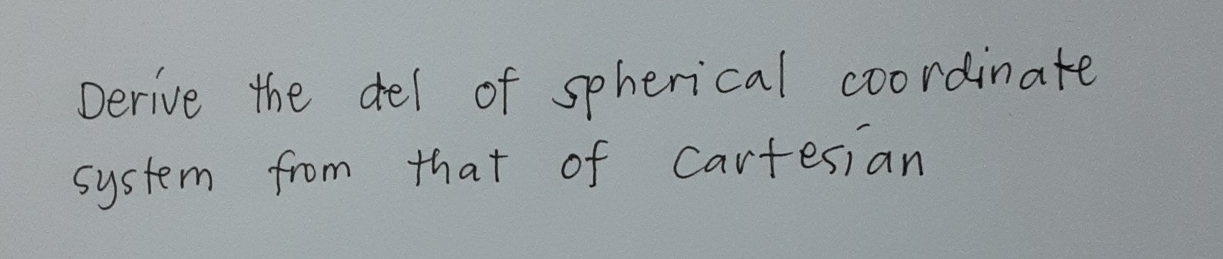 Derive the del of spherical coordinate
system from that of Cartesian